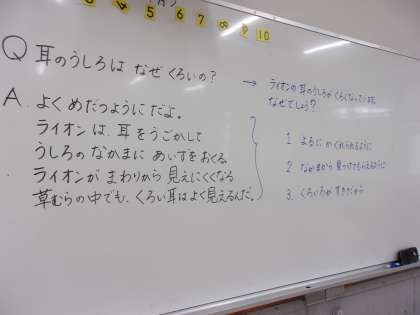 4 5 6 7 8 9 10
Q 耳のうしろは なぜ くろいの?
A. よく めだつように だよ。
ライオンは、耳を うごかして
うしろの なかまに あいずを おくる。
ライオンが まわりから 見えにくくなる
草むらの中でも、くろい 耳は よく見えるんだ。
→ ライオンの 耳のうしろが くろくなっているのは
なぜでしょう?
1. よるに かくれられるように
2. なかまから 見つけてもらえるように
3. くろいろが すきだから